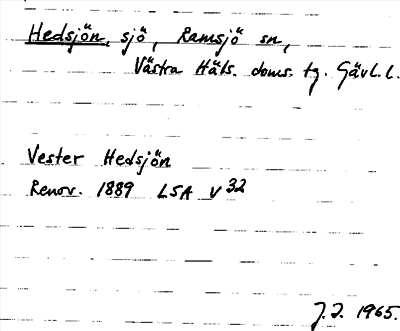 Hedsjön, sjö, Ramsjö sn,
Västra Häls. doms. tg. Gävl. l.
Vester Hedsjön
Renov. 1889 LSA V 32
J.J. 1965.